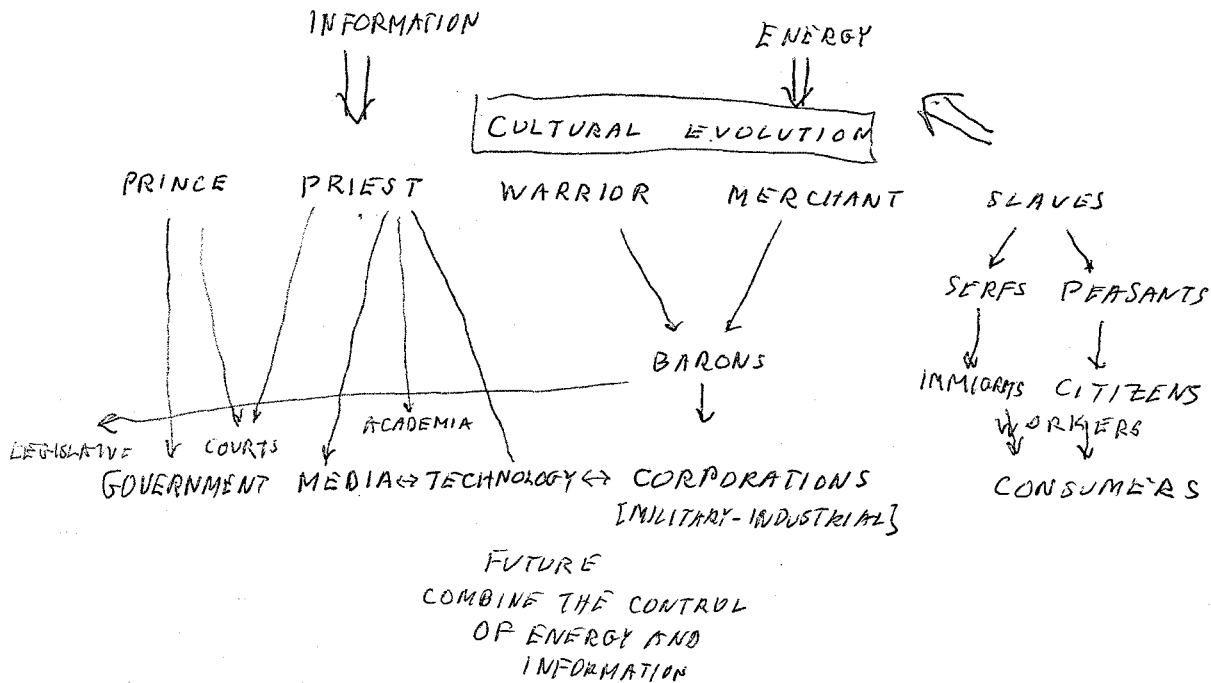 INFORMATION
ENERGY
CULTURAL EVOLUTION
PRINCE PRIEST WARRIOR MERCHANT SLAVES
SERFS PEASANTS
BARONS
IMMIGRNTS CITIZENS
ACADEMIA
WORKERS
LEGISLATIVE COURTS
GOVERNMENT MEDIA ↔ TECHNOLOGY ↔ CORPORATIONS CONSUMERS
[MILITARY-INDUSTRIAL]
FUTURE
COMBINE THE CONTROL
OF ENERGY AND
INFORMATION